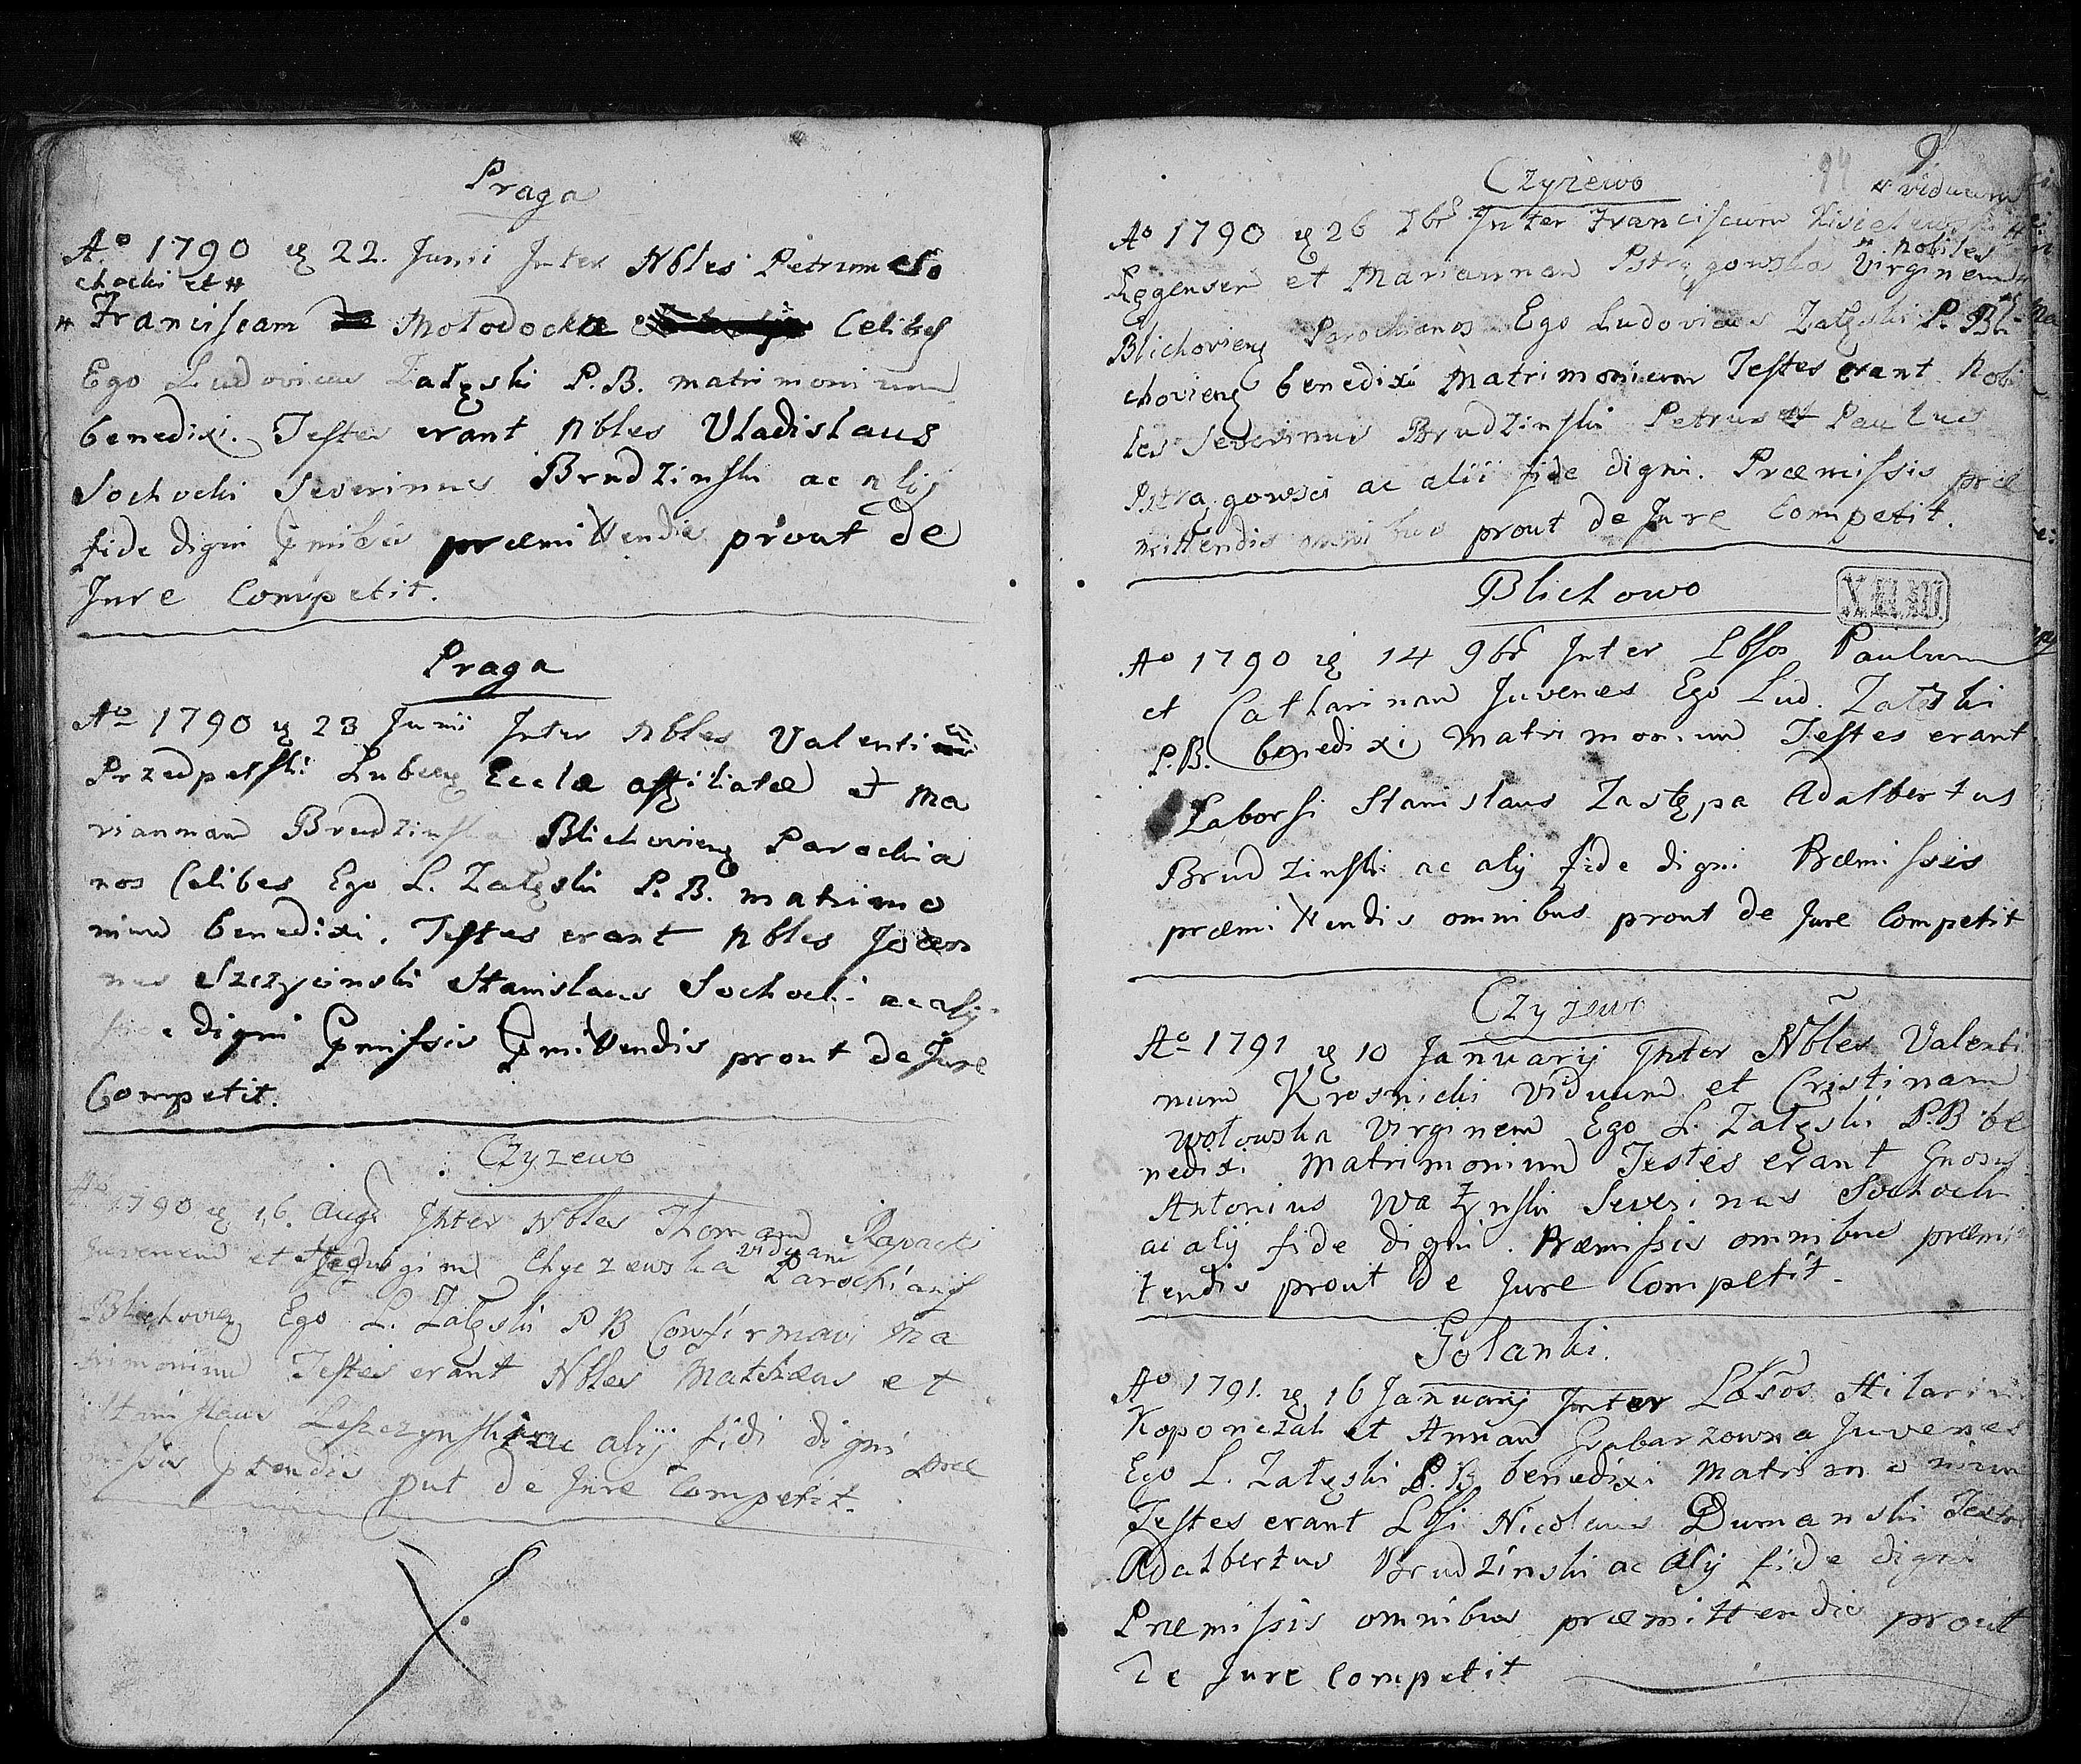 Praga
Ao 1790 q 22. Junii Inter Nbles Petrum So
chocki et #
# Franciscam Mołodocka Celibes
Ego Ludovicus Załęski P.B. matrimonium
benedixi. Testes erant Nbles Vladislaus
Sochocki Severinus Brudzinski ac alij
fide digni præmittendis prout de
Jure Competit.
Praga
Ao 1790 q 23 Junii Inter Nbles Valenti
Przedpełski Eccla affiliatæ et Ma
riannam Brudzinska Blichovieng Parochia
nos Celibes Ego L. Załęski P.B. matrimo
nium benedixi. Testes erant Nbles Joan
nes Szczycinski Stanislaus Sochocki ac alij
digni pmissis pmittendis prout de Jure
Competit.
Czyzewo
Ao 1790 q 16. Augi Inter Nbles Thomam Rapacki
Juvenem et Hedvigim viduam Parochians
Blichovieng Ego L. Załęski P B Confirmavi Ma
trimonium Testes erant Nbles Mathæus et
Stanislaus ac alij fidi digni Præ
missis ptendis put de Jure Competit.
Czyzewo
94
# viduum
Ao 1790 q 26 7bris Inter Franciscum
# nobiles
et Mariannam Pstrągowska Virginem #
Blichovieng Parochianos Ego Ludovicus Załęski P. Bli
chovieng benedixi Matrimonium Testes erant Nobi
les Severinus Brudzinski Petrus et Paulus
Pstrągowsci ac alii fide digni. Præmissis præ
mittendis omnibus prout de Jure Competit.
Blichowo
Ao 1790 q 14 9br Inter Lbsos Paulum
et Catharinam Juvenes Ego Lud. Załęski
P.B. benedixi Matrimonium Testes erant
Laborsi Stanislaus Zastępa Adalbertus
Brudzinski ac alij fide digni Præmissis
præmittendis omnibus prout de Jure Competit
Czyzewo
Ao 1791 q 10 Januarij Inter Nbles Valenti
num Krosnicki Viduum et Cristinam
Wołowska Virginem Ego L. Załęski P.B be
nedixi Matrimonium Testes erant Gnosus
Antonius Severinus Sochocki
ac alij fide digni. Præmissis omnibus præmit
tendis prout de Jure Competit.
Golanki.
Ao 1791. q 16 Januarij Inter Lbsos Hilarium
Koponczak et Annam Grabarzowna Juvenes
Ego L. Załęski P.B benedixi Matrimonium
Testes erant Lbsi Nicolaus Dumanski Textor
Adalbertus Brudzinski ac alij fide digni
Præmissis omnibus præmittendis prout
de Jure Competit